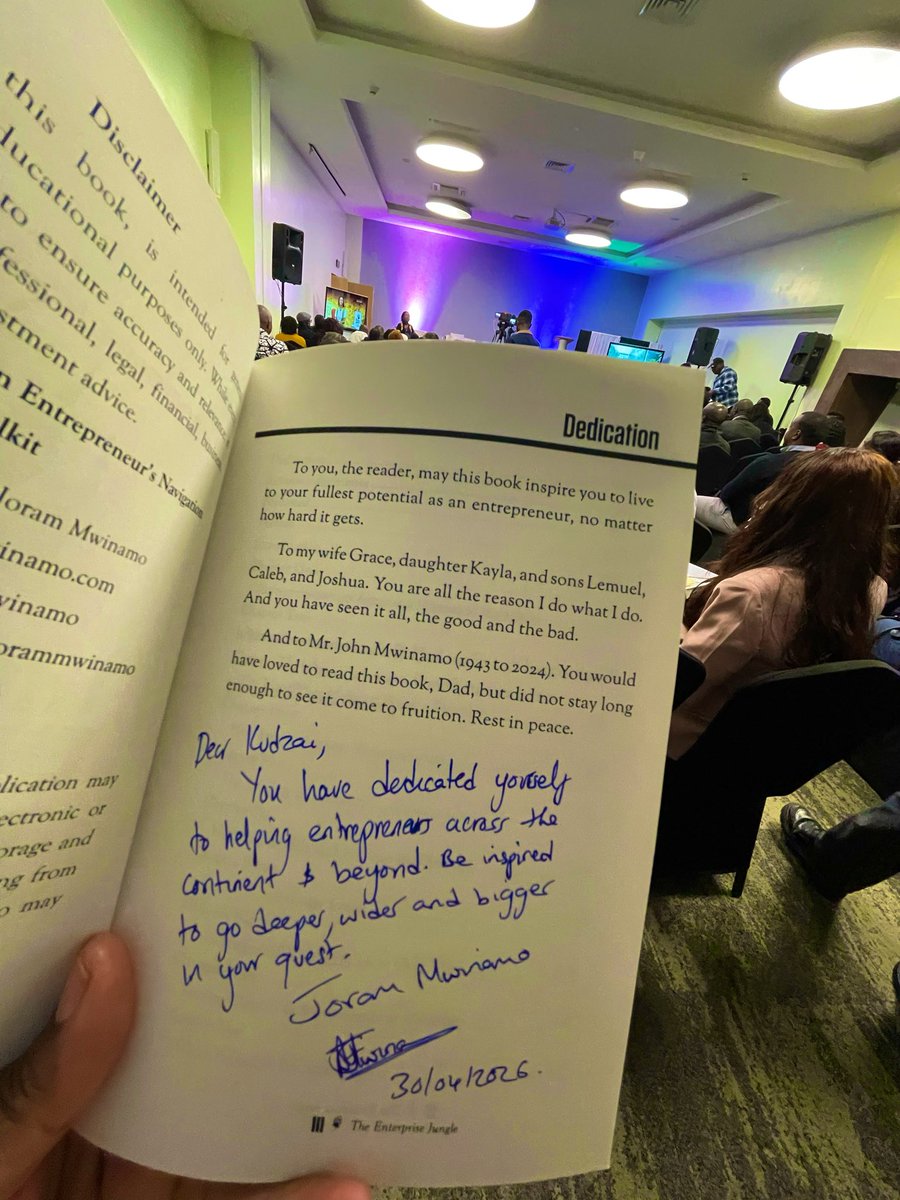 Disclaimer
this book, is intended for
ducational purposes only. While
to ensure accuracy and
fessional, legal, financial,
stment advice.
n Entrepreneur's Navigation
lkit
Joram Mwinamo
inamo.com
winamo
orammwinamo
plication may
ectronic or
orage and
ng from
o may
Dedication
To you, the reader, may this book inspire you to live
to your fullest potential as an entrepreneur, no matter
how hard it gets.
To my wife Grace, daughter Kayla, and sons Lemuel,
Caleb, and Joshua. You are all the reason I do what I do.
And you have seen it all, the good and the bad.
And to Mr. John Mwinamo (1943 to 2024). You would
have loved to read this book, Dad, but did not stay long
enough to see it come to fruition. Rest in peace.
Dear Kudzai,
You have dedicated yourself
to helping entrepreneurs across the
continent & beyond. Be inspired
to go deeper, wider and bigger
in your quest.
Joram Mwinamo
30/04/2026.
III The Enterprise Jungle